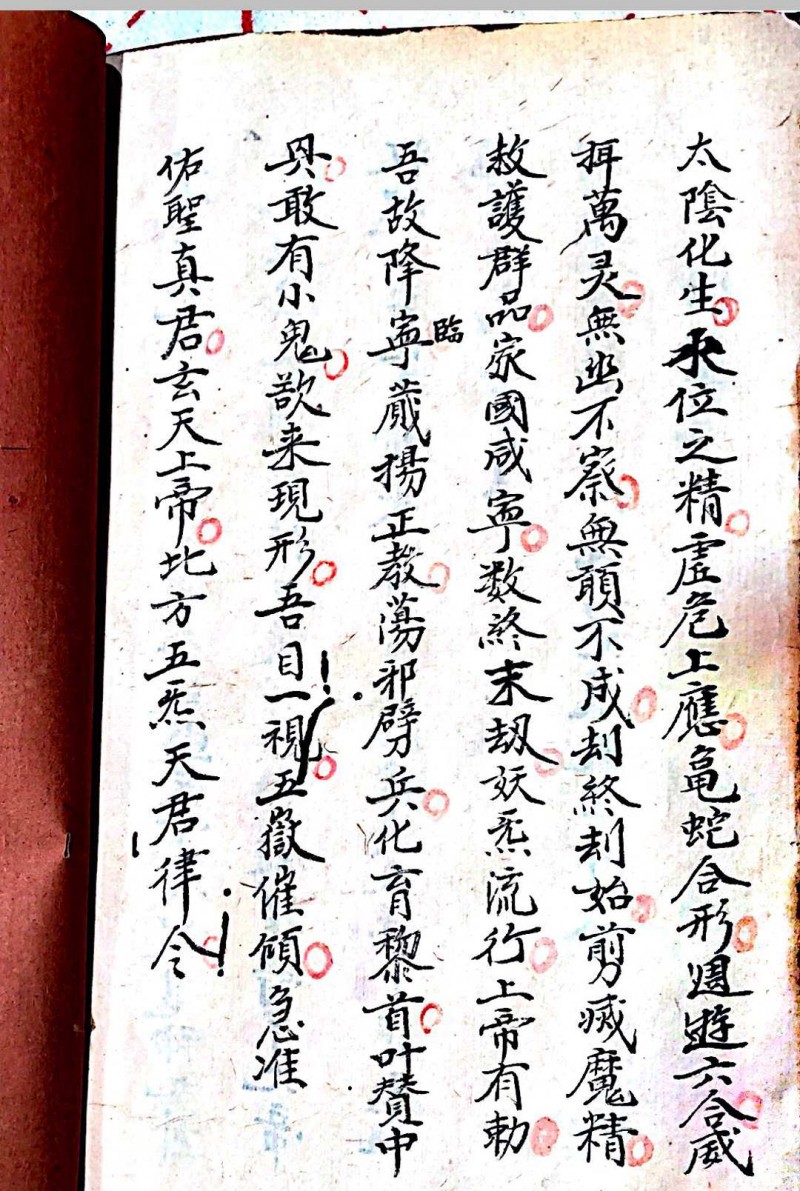 太陰化生承位之精虛危上應龜蛇合形週遊六合威
揖萬灵無幽不察無願不成刦終刦始剪滅魔精
救護群品家國咸寧数終末刼妖炁流行上帝有勅
吾故降臨寧蔵揚正教蕩邪劈兵化育黎首叶贊中
興敢有小鬼欲来現形吾目一視五嶽催傾急准
佑聖真君玄天上帝北方五炁天君律令